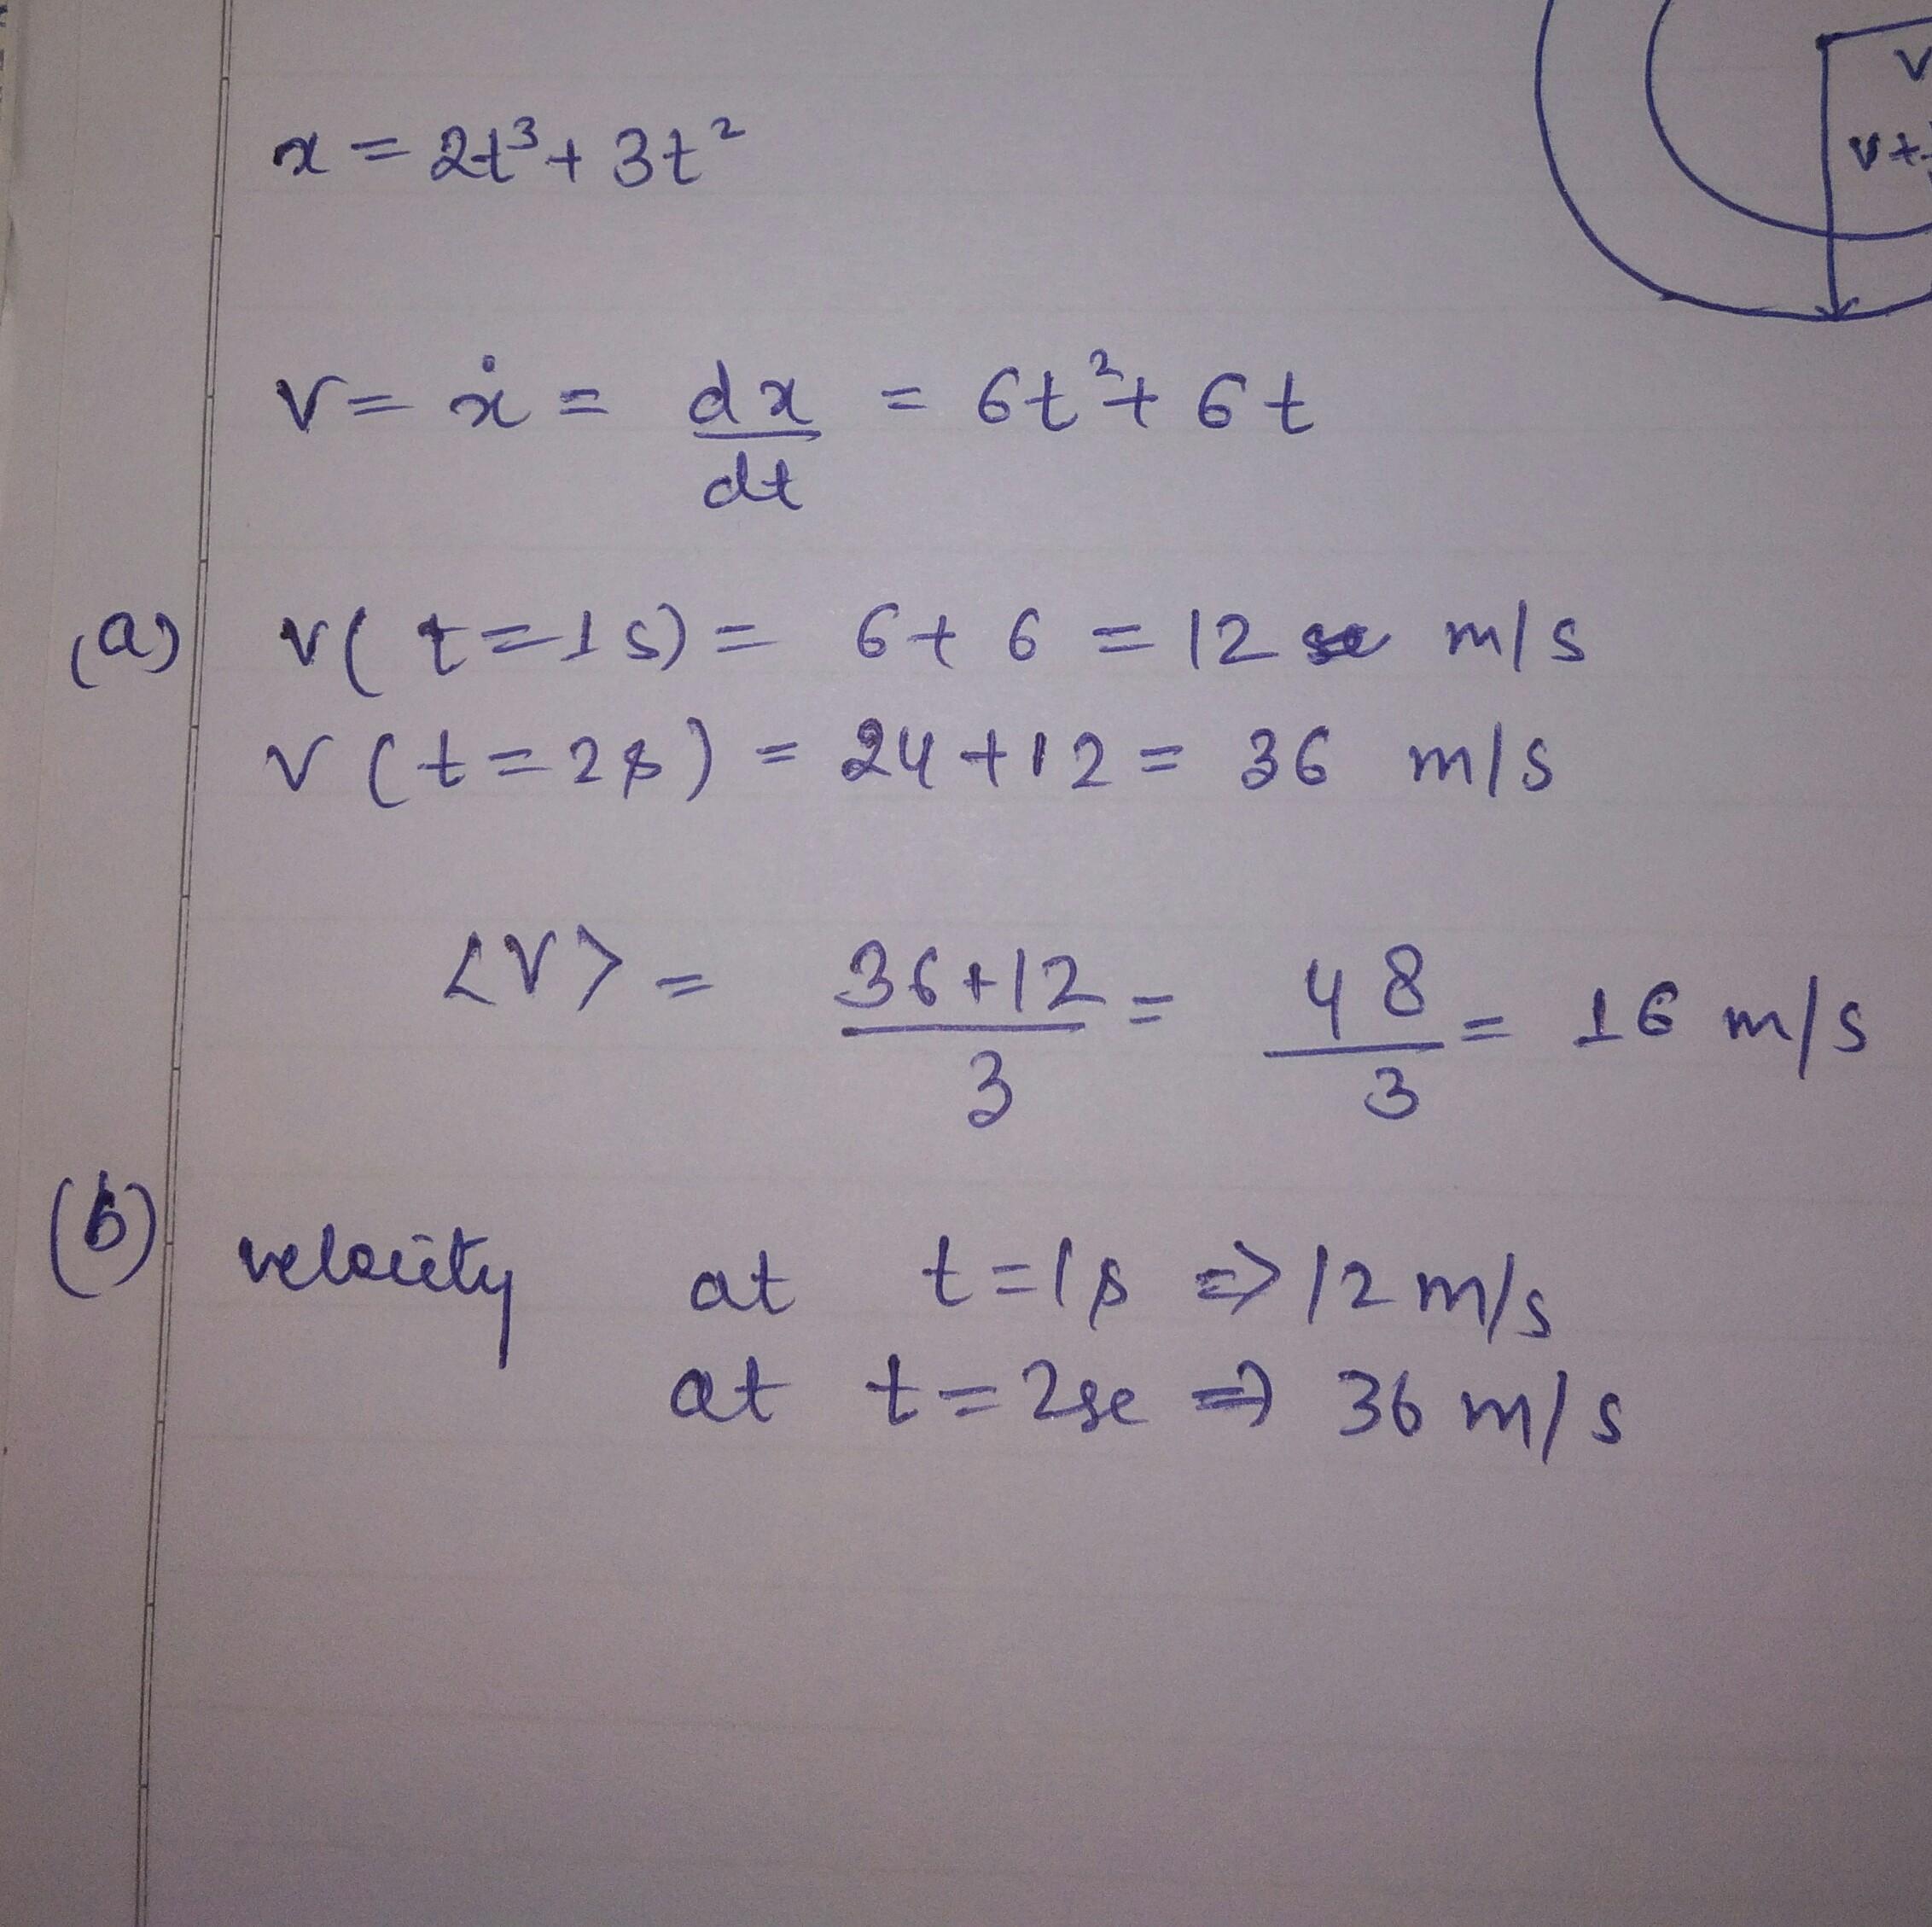 x = 2t³ + 3t²
v
v = ẋ = dx/dt = 6t² + 6t
(a) v( t=1s) = 6 + 6 = 12 m/s
v (t=2s) = 24 + 12 = 36 m/s
<v> = 36+12/3 = 48/3 = 16 m/s
(b) velocity at t=1s => 12 m/s
at t=2se => 36 m/s